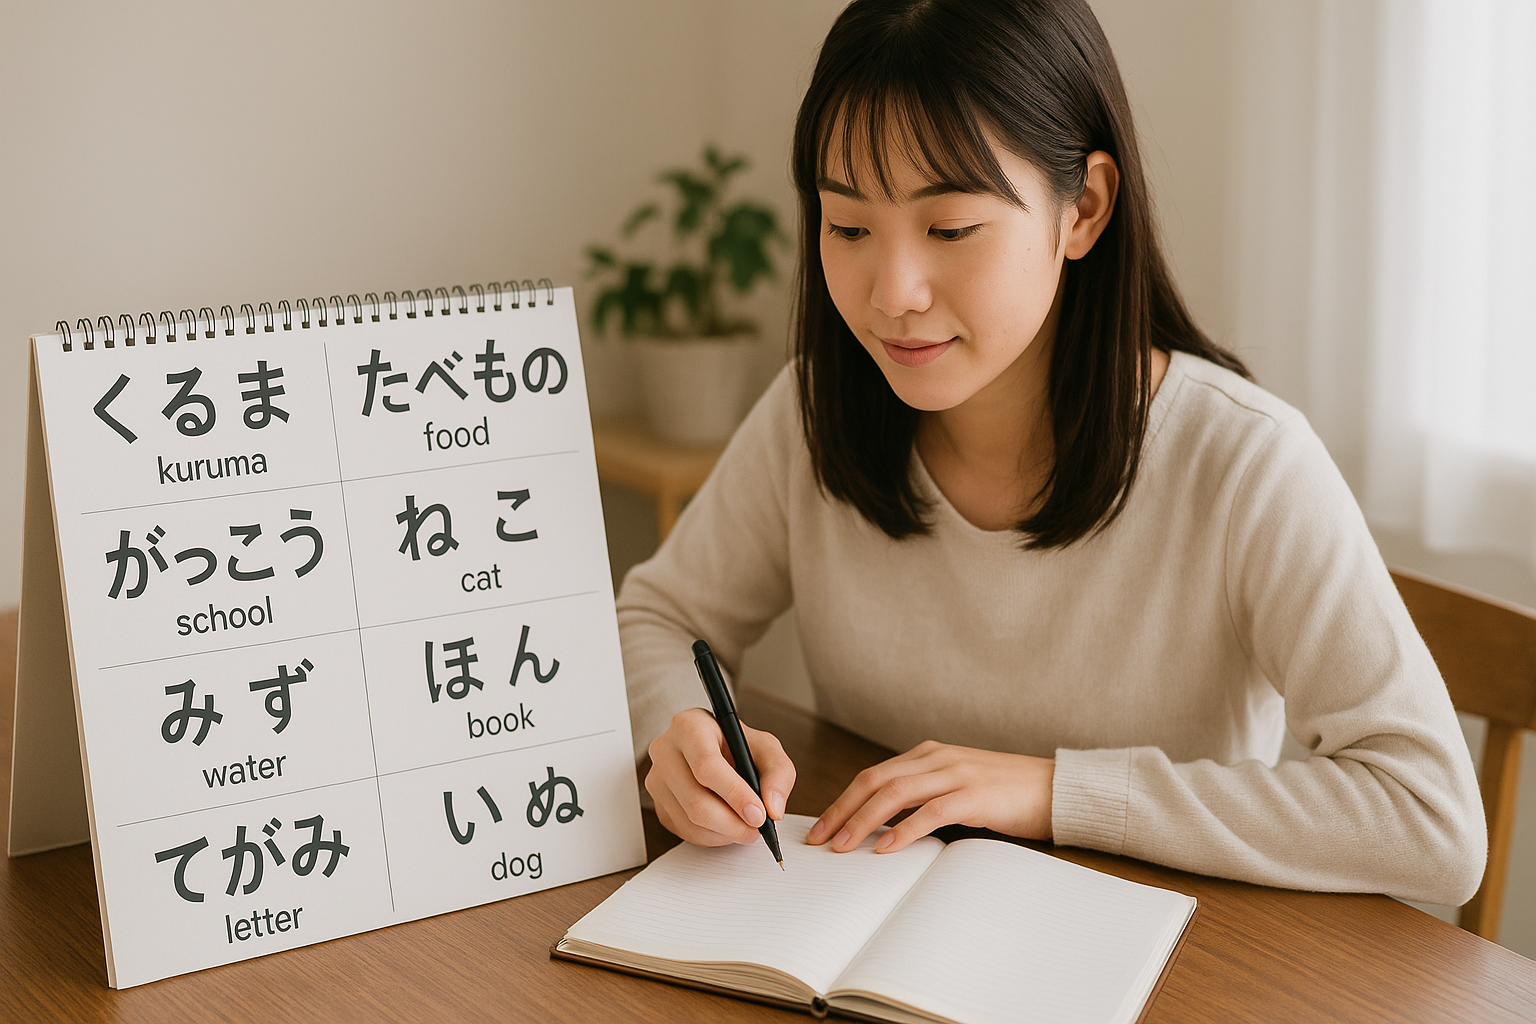 くるま
kuruma
たべもの
food
がっこう
school
ねこ
cat
みず
water
ほん
book
てがみ
letter
いぬ
dog